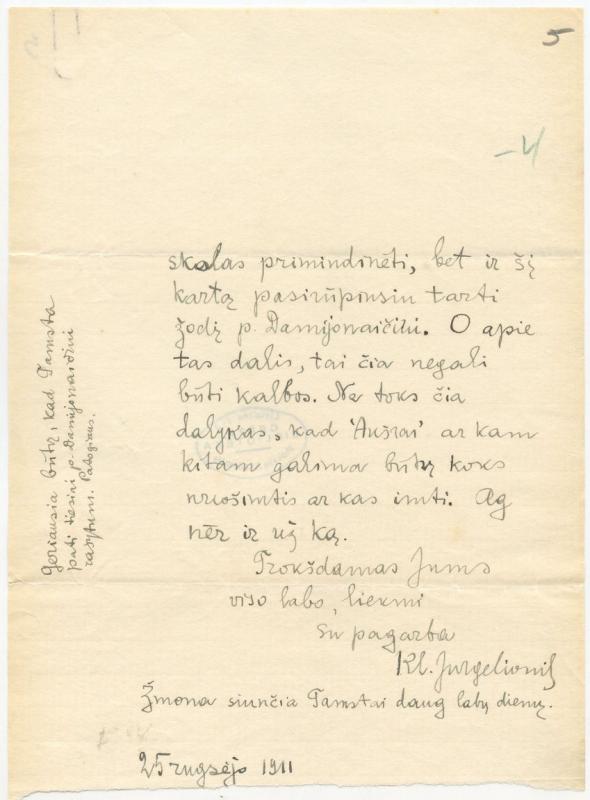 5
-4
skolas primindinėti, bet ir šį
kartą pasirūpinsiu tarti
žodį p. Damijonaičiui. O apie
tas dalis, tai čia negali
būti kalbos. Ne toks čia
dalykas, kad 'Aušrai' ar kam
kitam galima būtų koks
nuošimtis ar kas imti. Ag
nėr ir už ką.
Trokšdamas Jums
viso labo, liekmi
su pagarba
Kl. Jurgelionis
Žmona siunčia Tamstai daug labų dienų.
25 rugsėjo 1911
Geriausia būtų, kad Tamsta
pati tiesiai p. Damijonaičiui
rašytum. Patogiaus.